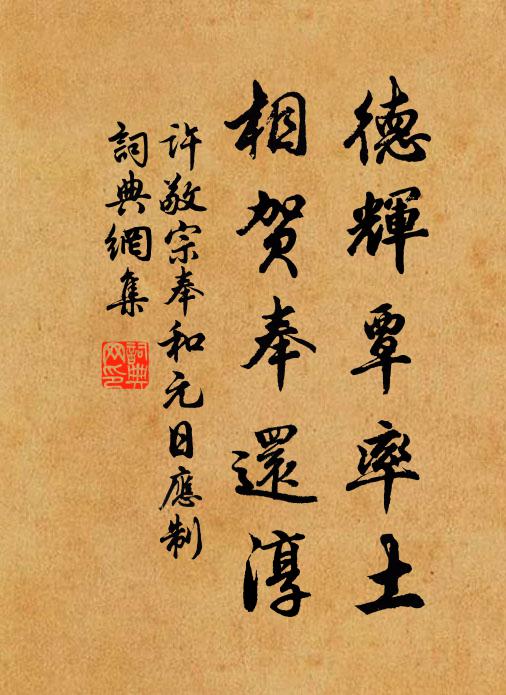 德輝覃率土
相贺奉還淳
许敬宗奉和元日應制
詞典網集
詞典網印